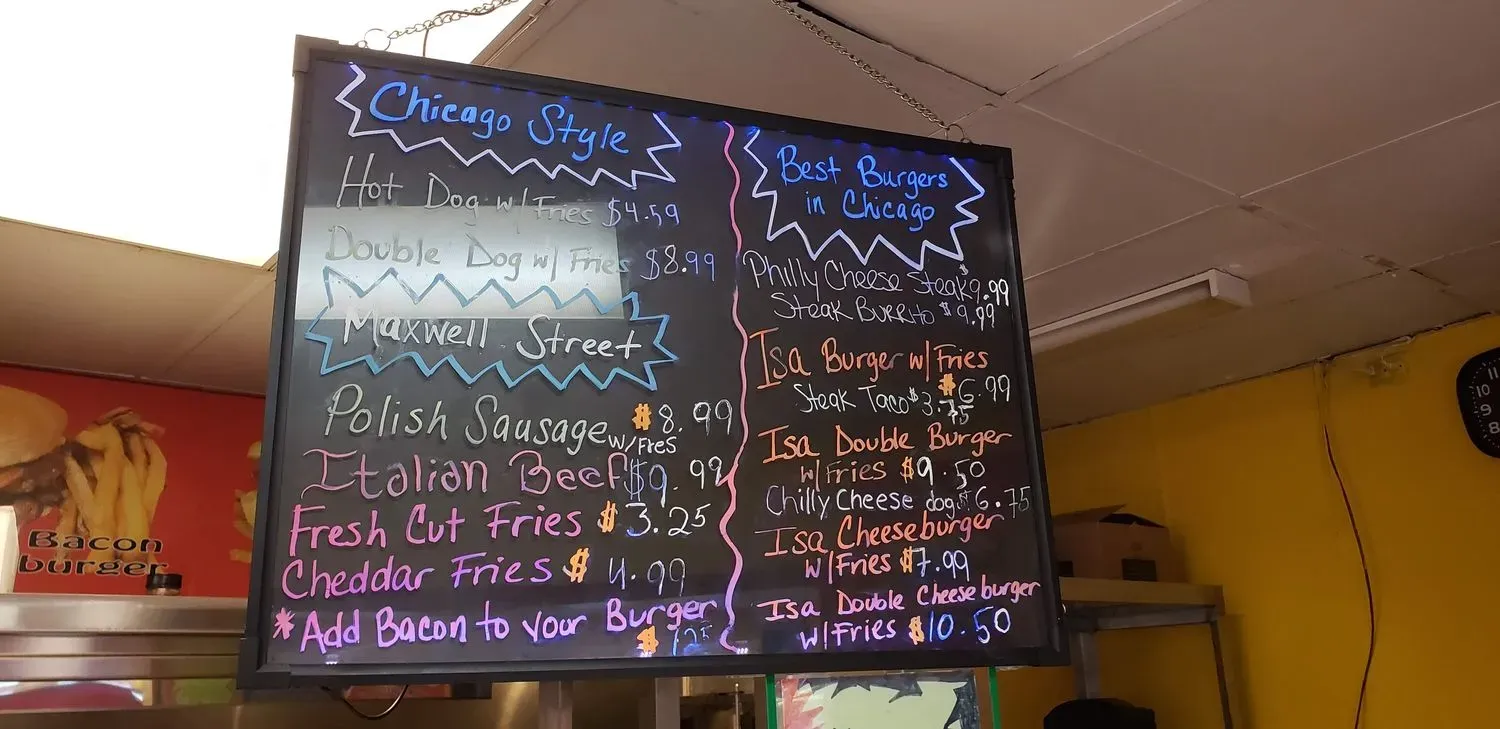 Chicago Style
Hot Dog w/ Fries $4.59
Double Dog w/ Fries $8.99
Maxwell Street
Polish Sausage $8.99
w/Fres
Italian Beef $9.99
Fresh Cut Fries $3.25
Cheddar Fries $4.99
*Add Bacon to your Burger
$1.25
Best Burgers
in Chicago
Philly Cheese Steak $9.99
Steak Burrito $9.99
Isa Burger w/Fries
$6.99
Steak Taco $3.75
Isa Double Burger
w/Fries $9.50
Chilly Cheese dog $6.75
Isa Cheeseburger
w/Fries $7.99
Isa Double Cheeseburger
w/Fries $10.50
Bacon
burger
11
10
9
8